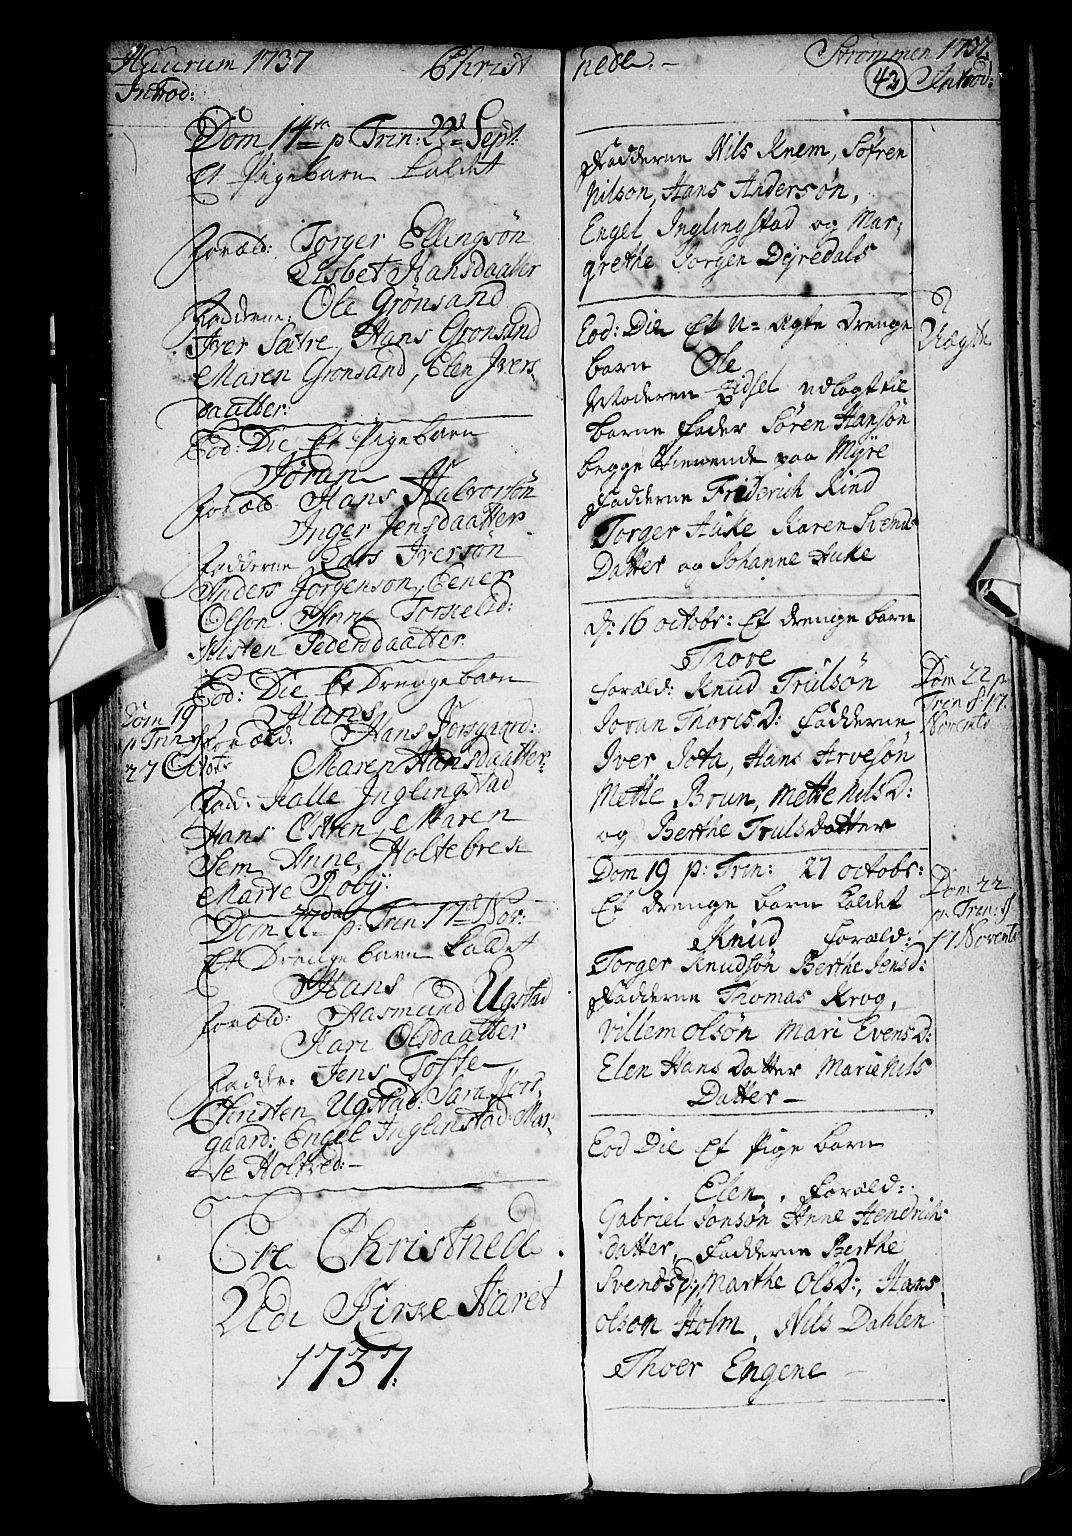 Huurum 1737 Christ
Introd:
Dom 14 p Trin: 22 Sept:
Et Pigebarn kaldet
Foræld: Torger Ellingsøn
Lisbet Hansdaatter
Fadderne: Ole Grønsand
Iver Sætre, Hans Gronsand
Maren Gronsand, Elen Ivers
daatter:
Eod: Die Et Pigebarn
Jøran
Foræld Hans Halvorsøn
Inger Jensdaatter
Fadderne Lars Iversøn
Anders Jorgenson, Eener
Olson Anne
Kisten Pedersdaatter
Eod: Die Et Drengebarn
Hans
Dom 19
p Trin
27 Octobr
Foræld: Hans Korsgaard:
Maren Hansdaatter
Fad: Kalle Inglingstad
Hans Østen, Maren
Sem Anne Holtebrek
Marte Røby:
Dom 22 p: Trin 17 Nov:
Et Drengebarn kaldet
Hans
Foræld: Aasmund Ugstad
Kari Olsdaatter
Fadder Jens Tofte
Christen Ugstad: Sara Kors
gaard: Engel Inglinstad Mar
te Holtved:
Ere Christnede
Udi Kirke Aaret
1737
nede. Strømmen 1737
42 Introd:
Fadderne Nils Knem, Søfren
Nilson, Hans Andersøn,
Engel Inglingstad og Mar,
grethe Jorgen Dyredals
Eod: Die Et U= Ægte Drenge
barn Ole
Moderen Sidsel udlagt til
barne Fader Søren Hansøn
begge tienende paa Myre
Fadderne Friderich Kind
Torger Huke Karen Svends
Datter og Johanne Huke
Uægte
d: 16 octobr: Et Drenge barn
Thove
Foræld: Knud Trulsøn
Joran ThorisD: Fadderne
Iver Jota, Hans Arvesøn
Mette Brun, Mette NilsD:
og Berthe Trulsdatter
Dom 22 p
Trin d 17
Novemb
Dom 19 p: Trin: 27 octobr:
Et drenge barn kaldet
Knud Foræld:
Torger Knudsøn Berthe JensD:
Fadderne Thomas Krog,
Villem Olsøn Mari EvensD:
Elen Hans Datter Marie Nils
Datter
Dom 22
p: Trin: d
17 Novemb
Eod Die Et Pige barn
Elen, Foræld:
Gabriel Jonsøn Anne Hendrich
datter, Fadderne Berthe
SvendsD, Marthe OlsD:, Hans
olson Holm, Nils Dahlen
Thoer Engene